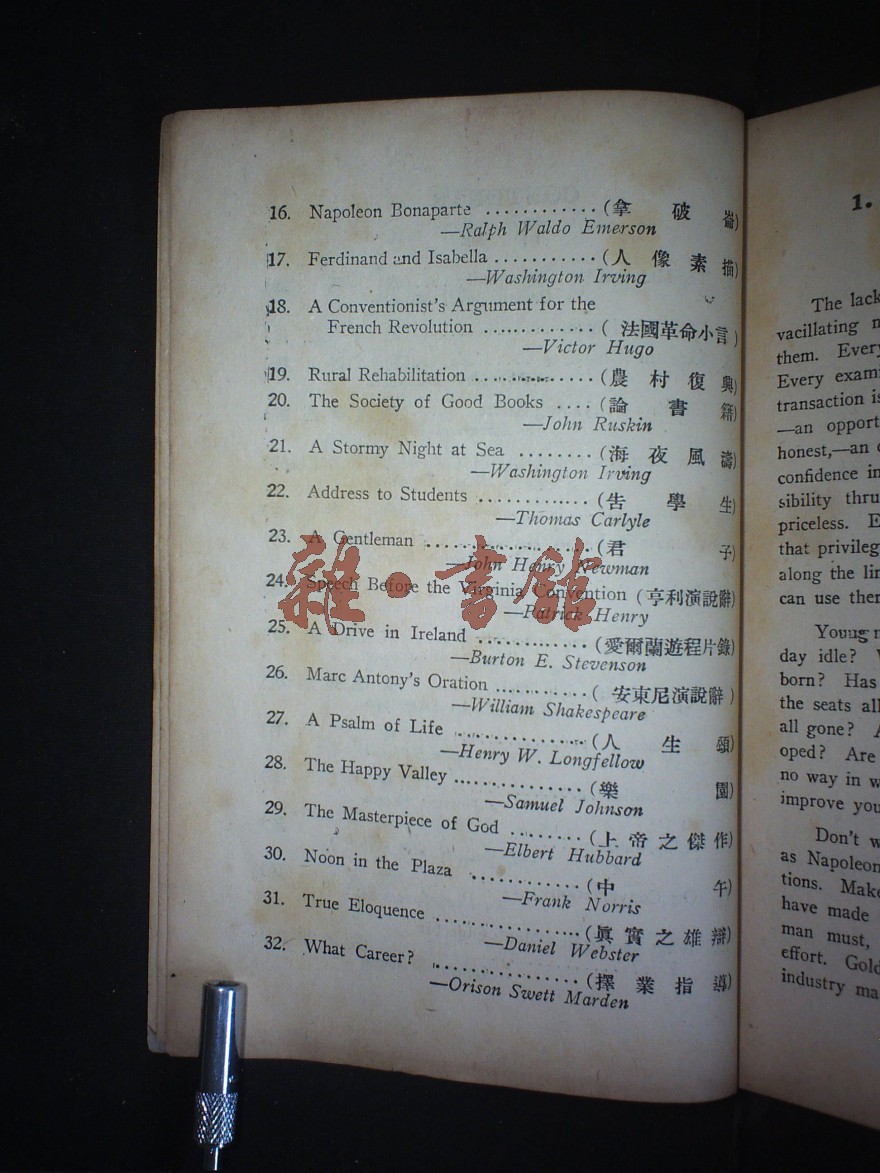 16. Napoleon Bonaparte ............(拿破崙)
—Ralph Waldo Emerson
17. Ferdinand and Isabella ...........(人像素描)
—Washington Irving
18. A Conventionist's Argument for the
French Revolution ............(法國革命小言)
—Victor Hugo
19. Rural Rehabilitation .............(農村復興)
20. The Society of Good Books ....(論書籍)
—John Ruskin
21. A Stormy Night at Sea ........(海夜風濤)
—Washington Irving
22. Address to Students ............(告學生)
—Thomas Carlyle
23. A Gentleman ..................(君子)
—John Henry Newman
24. Speech Before the Virginia Convention (亨利演說辭)
—Patrick Henry
25. A Drive in Ireland ............(愛爾蘭遊程片錄)
—Burton E. Stevenson
26. Marc Antony's Oration ...........(安東尼演說辭)
—William Shakespeare
27. A Psalm of Life ..............(人生頌)
—Henry W. Longfellow
28. The Happy Valley ...............(樂園)
—Samuel Johnson
29. The Masterpiece of God ........(上帝之傑作)
—Elbert Hubbard
30. Noon in the Plaza ............(中午)
—Frank Norris
31. True Eloquence ................(眞實之雄辯)
—Daniel Webster
32. What Career? ................(擇業指導)
—Orison Swett Marden
雜·書館
1.
The lack
vacillating
them. Every
Every exami
transaction is
—an opport
honest,—an
confidence in
sibility thru
priceless. E
that privileg
along the lin
can use then
Young
day idle?
born? Has
the seats all
all gone?
oped? Are
no way in w
improve you
Don't w
as Napoleon
tions. Make
have made
man must,
effort. Gold
industry ma